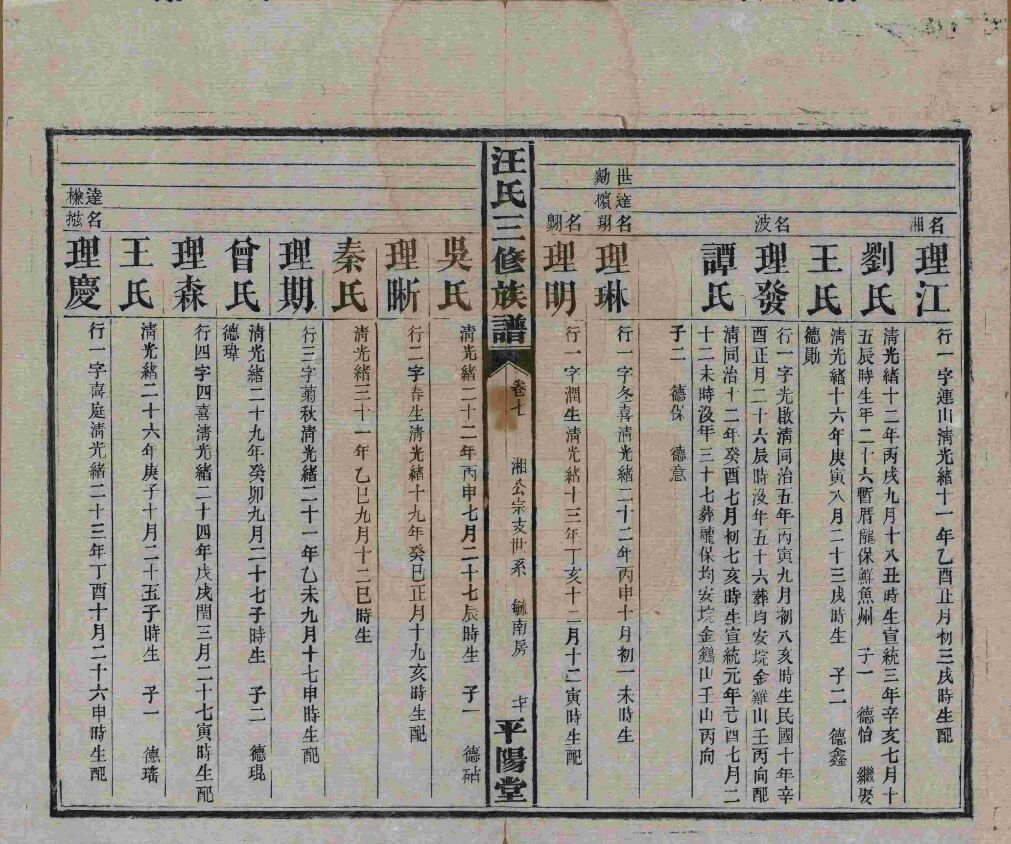 湘名
理江
行一字連山淸光緒十一年乙酉正月初三戌時生配
劉氏
淸光緒十二年丙戌九月十八丑時生宣統三年辛亥七月十
五辰時生年二十六暫厝龍保鮮魚州 子一 德怡 繼娶
王氏
淸光緒十六年庚寅八月二十三戌時生 子二 德鑫
德勛
波名
理發
行一字光啟淸同治五年丙寅九月初八亥時生民國十年辛
酉正月二十六辰時沒年五十六葬均安垸金雞山壬丙向配
譚氏
淸同治十二年癸酉七月初七亥時生宣統元年己酉七月二
十二未時沒年三十七葬龍保均安垸金鷄山壬山丙向
子二 德保 德意
世達名
勷檳翔
理琳
行一字冬喜淸光緒二十二年丙申十月初一未時生
名
理明
行一字潤生淸光緒十三年丁亥十二月十二寅時生配
汪氏三修族譜
卷七
湘公宗支世系 毓南房
平陽堂
吳氏
淸光緒二十二年丙申七月二十七辰時生 子一 德砧
理晰
行二字春生淸光緒十九年癸巳正月十九亥時生配
秦氏
淸光緒三十一年乙巳九月十二巳時生
理期
行三字菊秋淸光緒二十一年乙未九月十七申時生配
曾氏
淸光緒二十九年癸卯九月二十七子時生 子二 德琨
德瑋
理森
行四字四喜淸光緒二十四年戊戌閏三月二十七寅時生配
王氏
淸光緒二十六年庚子十月二十五子時生 子一 德瑤
達名
理慶
行一字喜庭淸光緒二十三年丁酉十月二十六申時生配